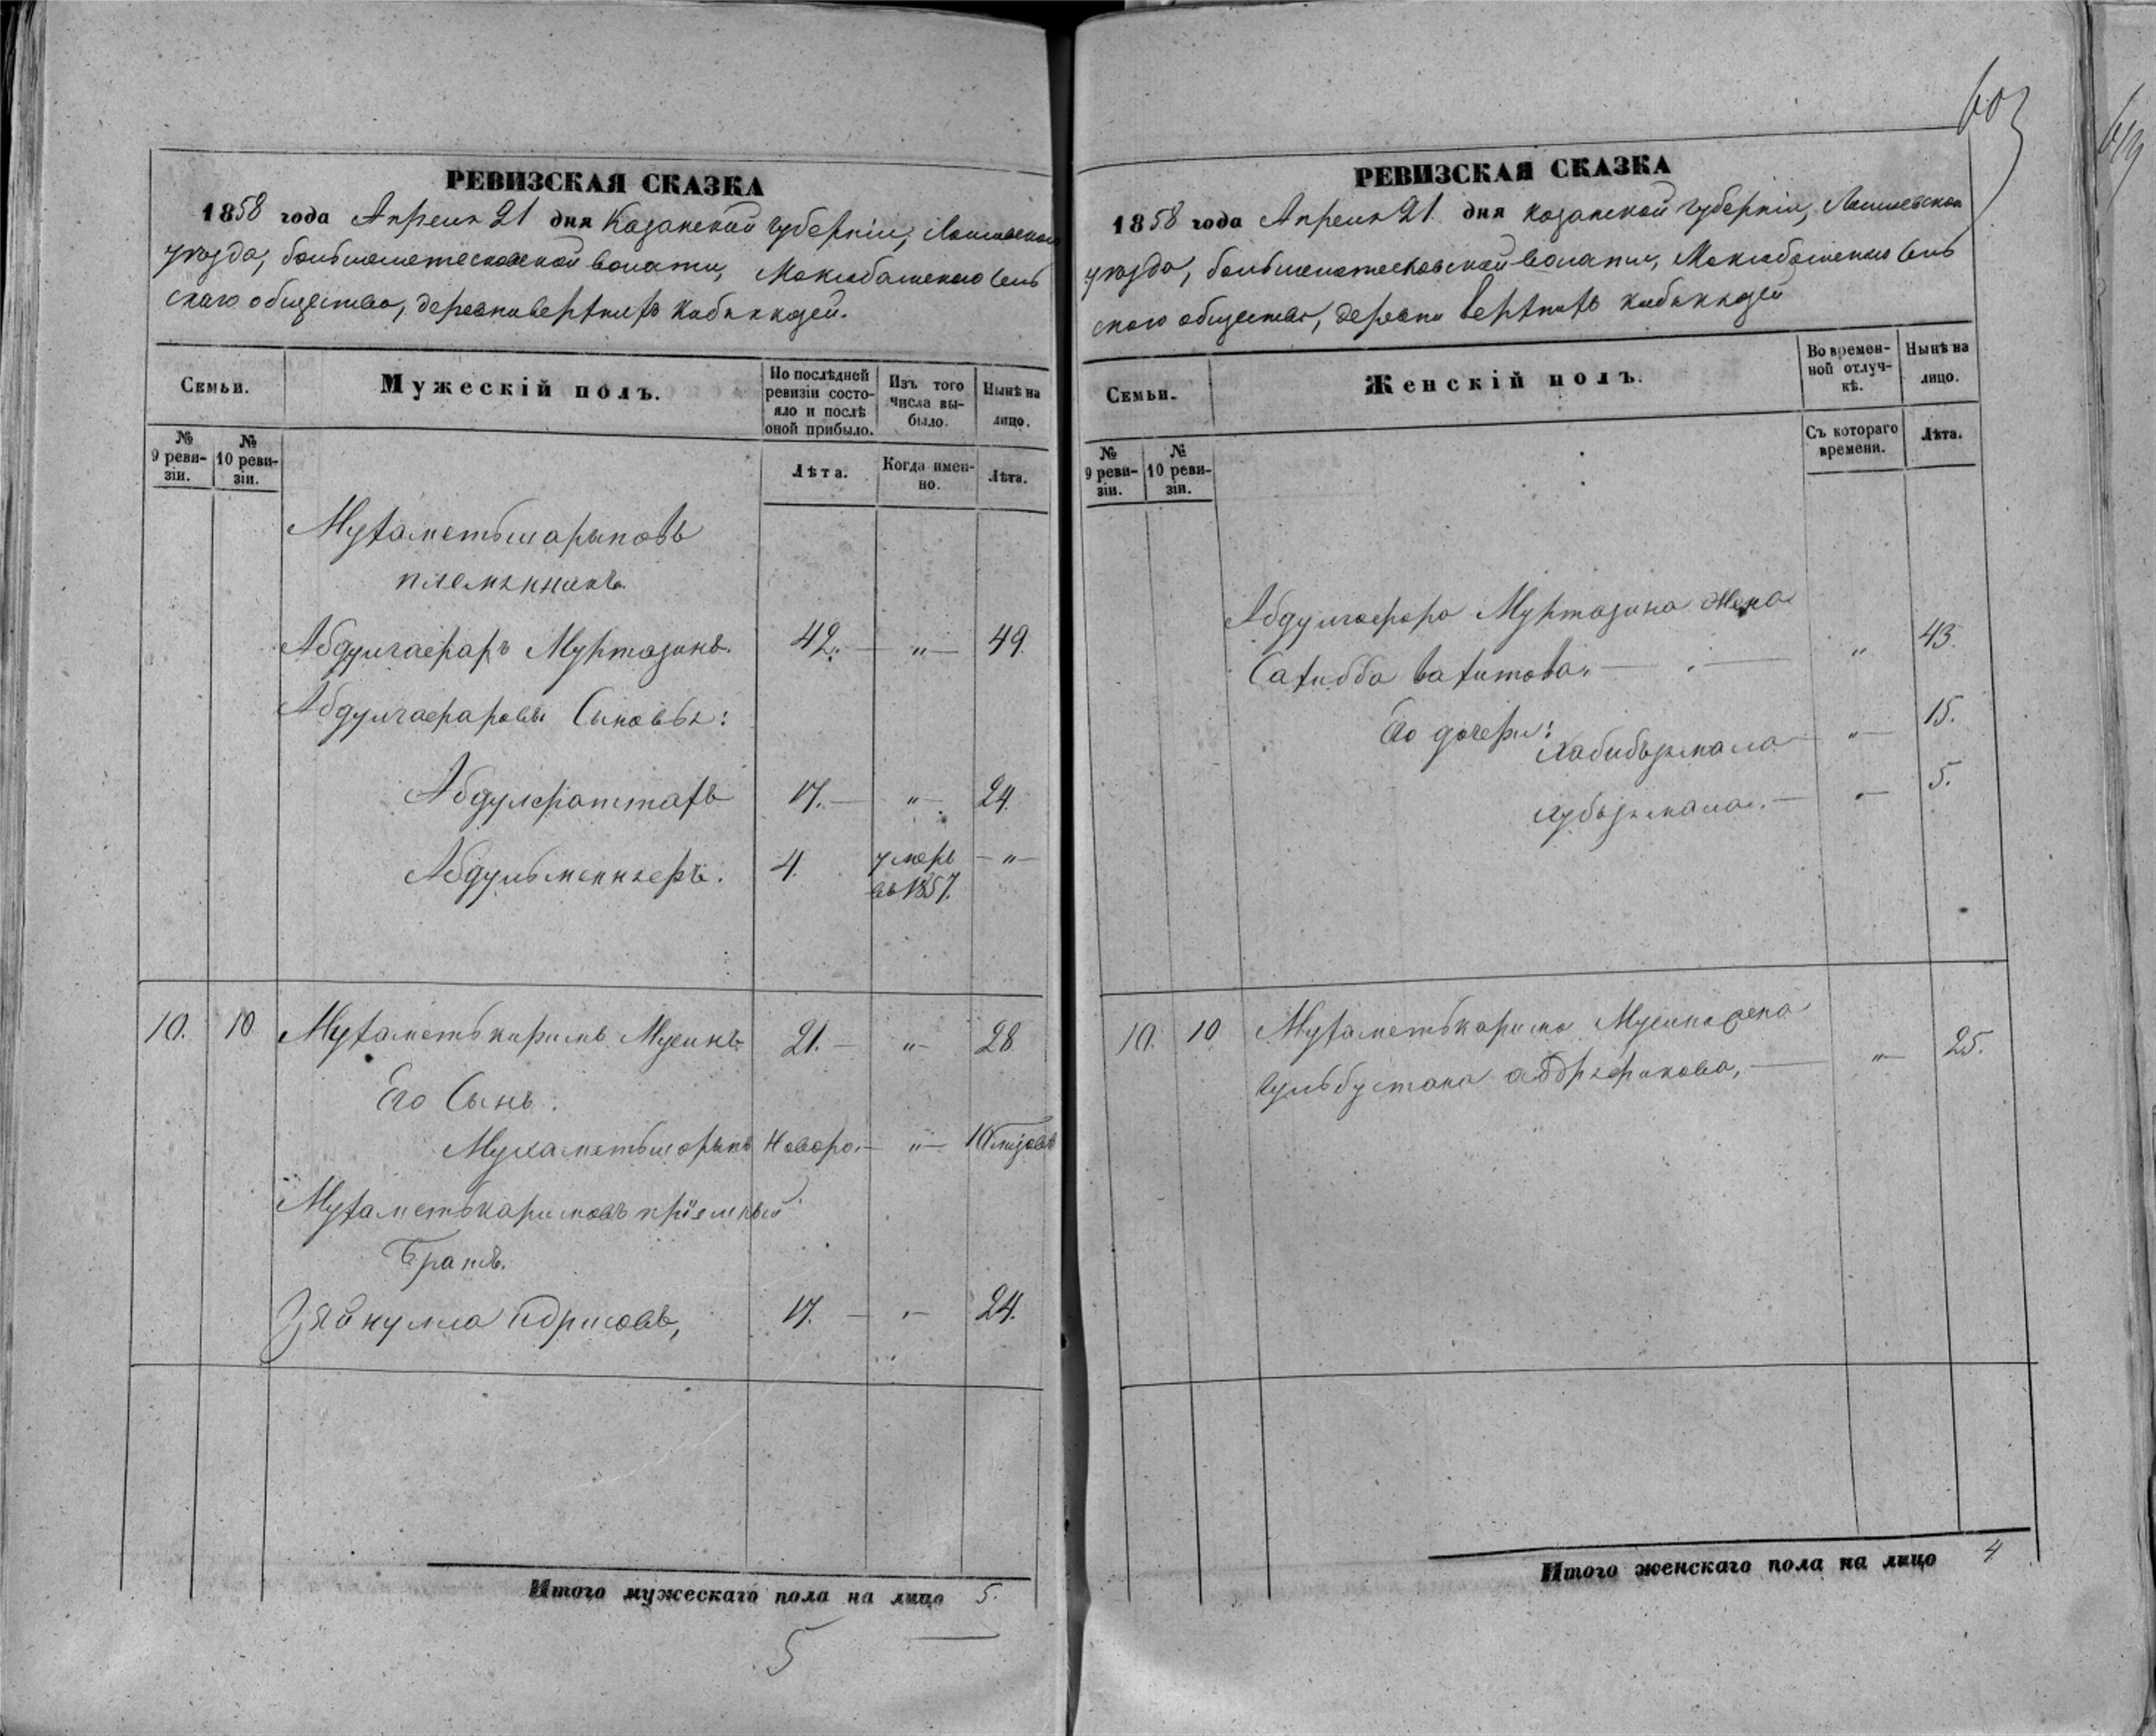 РЕВИЗСКАЯ СКАЗКА
1858 года Апреля 21 дня Казанской губерніи, Лаишевскаго
уѣзда, большеметесковской волости, Маклобашенаго сель
скаго общества, деревни верхнихъ Кибякозей.
Семьи.
Мужескій полъ.
По послѣдней ревизіи состояло и послѣ оной прибыло.
Изъ того числа выбыло.
Нынѣ на лицо.
№ 9 ревизіи.
№ 10 ревизіи.
Лѣта.
Когда именно.
Лѣта.
Мухаметьшарыповъ
племянникъ.
Абдулгафаръ Муртазинъ. 42. — „ — 49.
Абдулгафаровы Сыновья:
Абдулфаттахъ 17. — „ — 24.
Абдульменнефъ. 4. умеръ — „ —
въ 1857.
10. 10 Мухаметькаримъ Мусинъ 21. — „ — 28
Его Сынъ.
Мухаметьшарыпъ Новоро. — „ — 10 мѣзовъ
Мухаметькаримовъ пріемный
Братъ.
Зяйнулла Идрисовъ, 17. — „ — 24.
Итого мужескаго пола на лицо 5.
5
603
РЕВИЗСКАЯ СКАЗКА
1858 года Апреля 21 дня Казанской губерніи, Лаишевскаго
уѣзда, большеметесковской волости, Маклобашенаго сель
скаго общества, деревни верхнихъ Кибякозей
Семьи.
Женскій полъ.
Во временной отлучкѣ.
Нынѣ на лицо.
№ 9 ревизіи.
№ 10 ревизіи.
Съ котораго времени.
Лѣта.
Абдулгафара Муртазина жена
Сахибба Вахитова. — „ 43.
Его дочери:
Хабибъзямала — „ — 15.
Хубъзямала. — „ — 5.
10. 10 Мухаметькарима Мусина жена
Гульбустана — „ — 25.
Итого женскаго пола на лицо 4